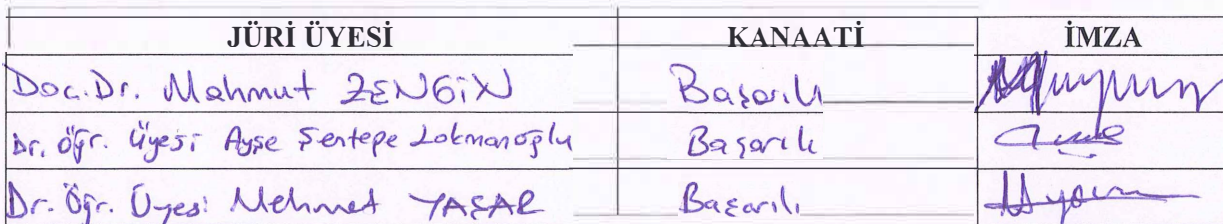 JÜRİ ÜYESİ KANAATİ İMZA
Doc.Dr. Mahmut ZENGİN Başarılı
Dr. Öğr. Üyesi Ayşe Şentepe Lokmanoğlu Başarılı
Dr. Öğr. Üyesi Mehmet YAŞAR Başarılı